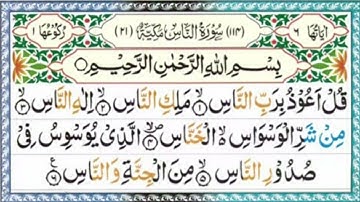 اٰیَاتُهَا ٦ (١١٤) سُوْرَةُ النَّاسِ مَكِّيَّةٌ (٢١) رُكُوْعُهَا ١
بِسْمِ اللّٰهِ الرَّحْمٰنِ الرَّحِيْمِ
قُلْ اَعُوْذُ بِرَبِّ النَّاسِ ۙ﴿١﴾ مَلِكِ النَّاسِ ۙ﴿٢﴾ اِلٰهِ النَّاسِ ۙ﴿٣﴾
مِنْ شَرِّ الْوَسْوَاسِ ۙ۬ الْخَنَّاسِ ۪ۙ﴿٤﴾ الَّذِيْ يُوَسْوِسُ فِيْ
صُدُوْرِ النَّاسِ ۙ﴿٥﴾ مِنَ الْجِنَّةِ وَالنَّاسِ ﴿٦﴾